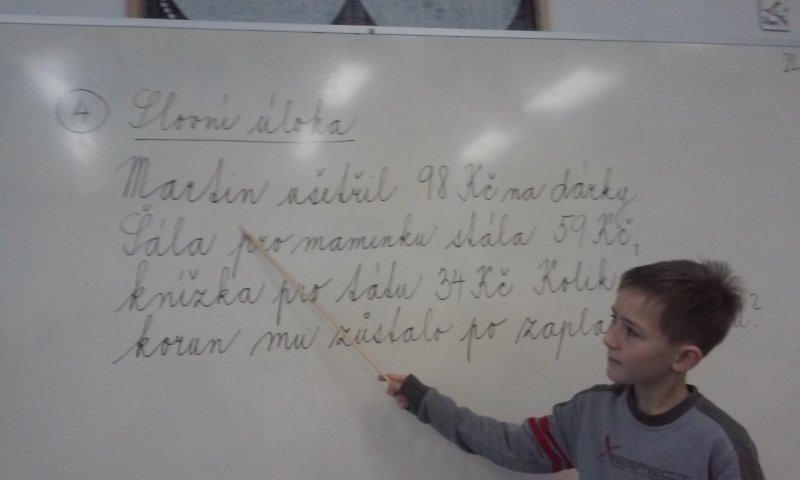 4 Slovní úloha
Martin ušetřil 98 Kč na dárky.
Šála pro maminku stála 59 Kč,
knížka pro tátu 34 Kč. Kolik
korun mu zůstalo po ?